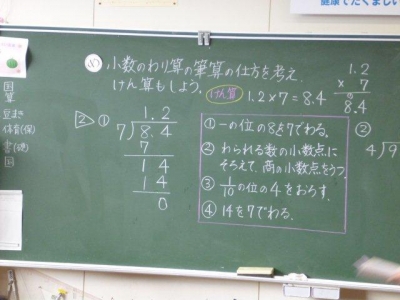 健康でたくましい
め 小数のわり算の筆算の仕方を考え、
けん算もしよう。
けん算 1.2×7=8.4
1.2
× 7
8.4
国
算
体育(保)
国
2 ①
1.2
7)8.4
7
14
14
0
① 一の位の8を7でわる。
② わられる数の小数点に
そろえて、商の小数点をうつ。
③ 1/10の位の4をおろす。
④ 14を7でわる。
②
4)9